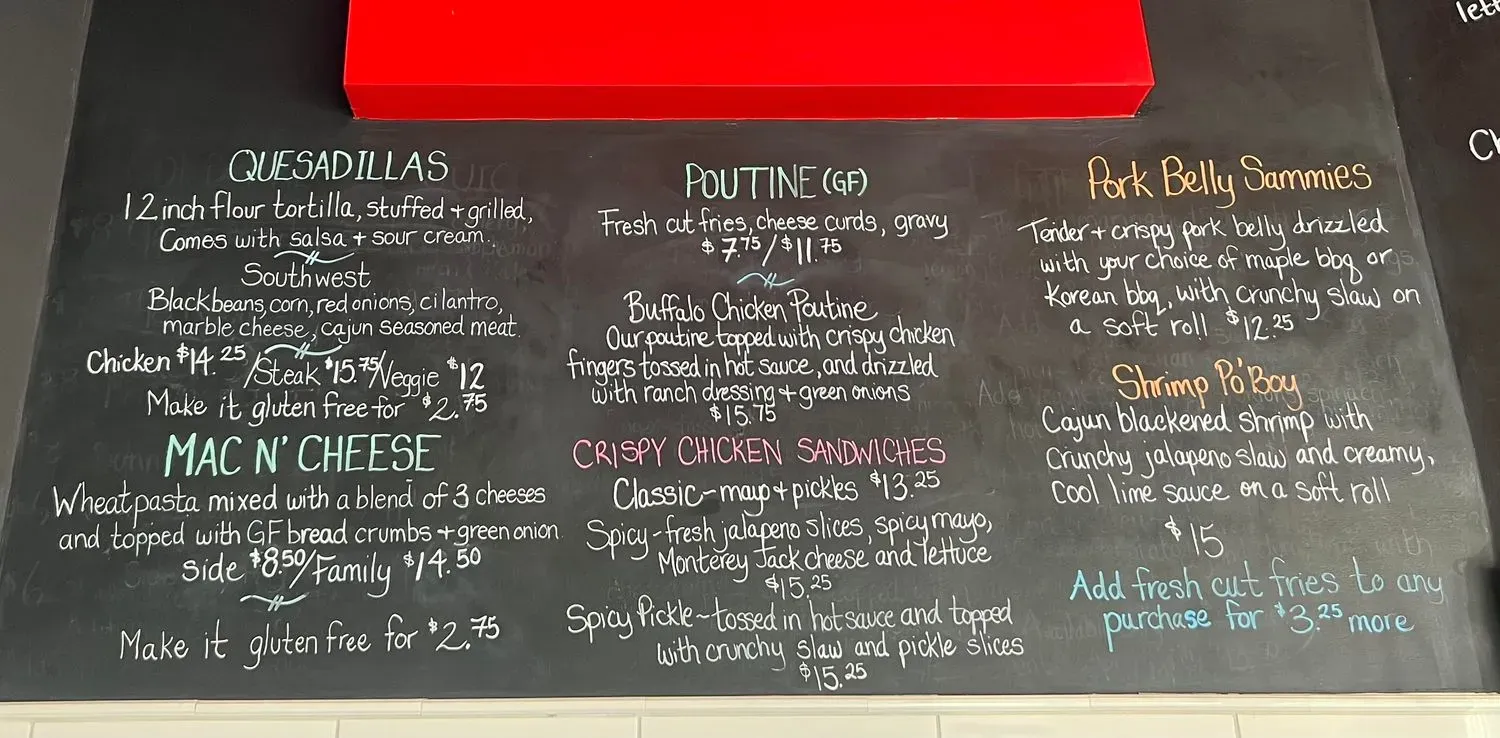 QUESADILLAS
12 inch flour tortilla, stuffed + grilled,
Comes with salsa + sour cream.
Southwest
Black beans, corn, red onions, cilantro,
marble cheese, cajun seasoned meat.
Chicken $14.25/Steak $15.75/Veggie $12
Make it gluten free for $2.75
MAC N' CHEESE
Wheat pasta mixed with a blend of 3 cheeses
and topped with GF bread crumbs + green onion
side $8.50/Family $14.50
Make it gluten free for $2.75
POUTINE (GF)
Fresh cut fries, cheese curds, gravy
$7.75/$11.75
Buffalo Chicken Poutine
Our poutine topped with crispy chicken
fingers tossed in hot sauce, and drizzled
with ranch dressing + green onions
$15.75
CRISPY CHICKEN SANDWICHES
Classic-mayo + pickles $13.25
Spicy-fresh jalapeno slices, spicy mayo,
Monterey Jack cheese and lettuce
$15.25
Spicy Pickle-tossed in hot sauce and topped
with crunchy slaw and pickle slices
$15.25
Pork Belly Sammies
Tender + crispy pork belly drizzled
with your choice of maple bbq or
Korean bbq, with crunchy slaw on
a soft roll $12.25
Shrimp Po'Boy
Cajun blackened shrimp with
crunchy jalapeno slaw and creamy,
cool lime sauce on a soft roll
$15
Add fresh cut fries to any
purchase for $3.25 more